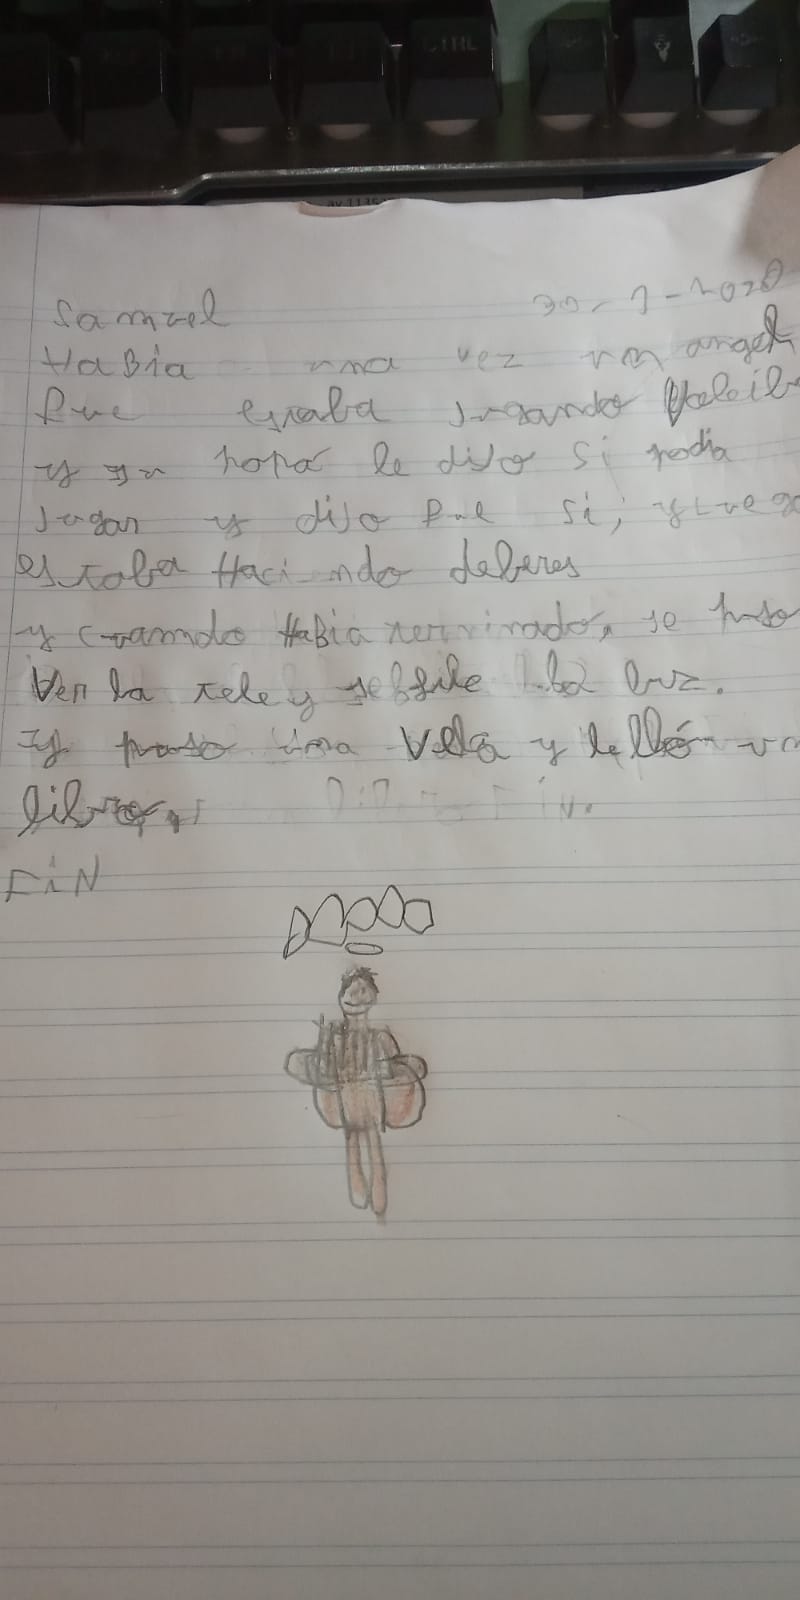 CTRL
Samuel 30-1-2020
HaBía una vez un angel
que estaba Jugando Voleib
y su papá le dijo si podia
Jugar y dijo que si, y Luego
estaba Haciendo deberes
y cuando HaBía terminado, se puso
Ver la tele y se fue la luz.
y puso una Vela y le lleó un
libro.
FiN.
FiN